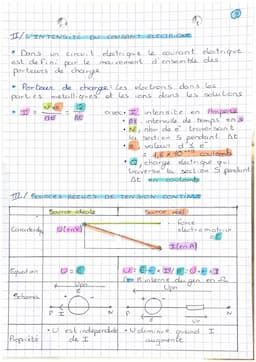 II/ L'INTENSITÉ DU COURANT ELECTRIQUE
• Dans un circuit électrique le courant électrique
est défini par le mouvement d'ensemble des
porteurs de charge
• Porteur de charge : les électrons dans les
parties métalliques et les ions dans les solutions
• I = = Q
Δt Δt
avec • I intensité en Ampère
• Δt intervalle de temps en s
• N nbr de e⁻ traversant
la section S pendant Δt
• e valeur d'1 e⁻
= 1,6 × 10⁻¹⁹ coulomb
• Q charge électrique qui
traverse la section S pendant
Δt en coulomb
III/ SOURCES RÉELLES DE TENSION CONTINUE
Source idéale Source réel
U (en V)
Force
électromotrice
= E
I (en A)
Equation U = E
Schéma UPN UPN
P N P N
Propriété • U est indépendante
de I
• U diminue quand I
augmente